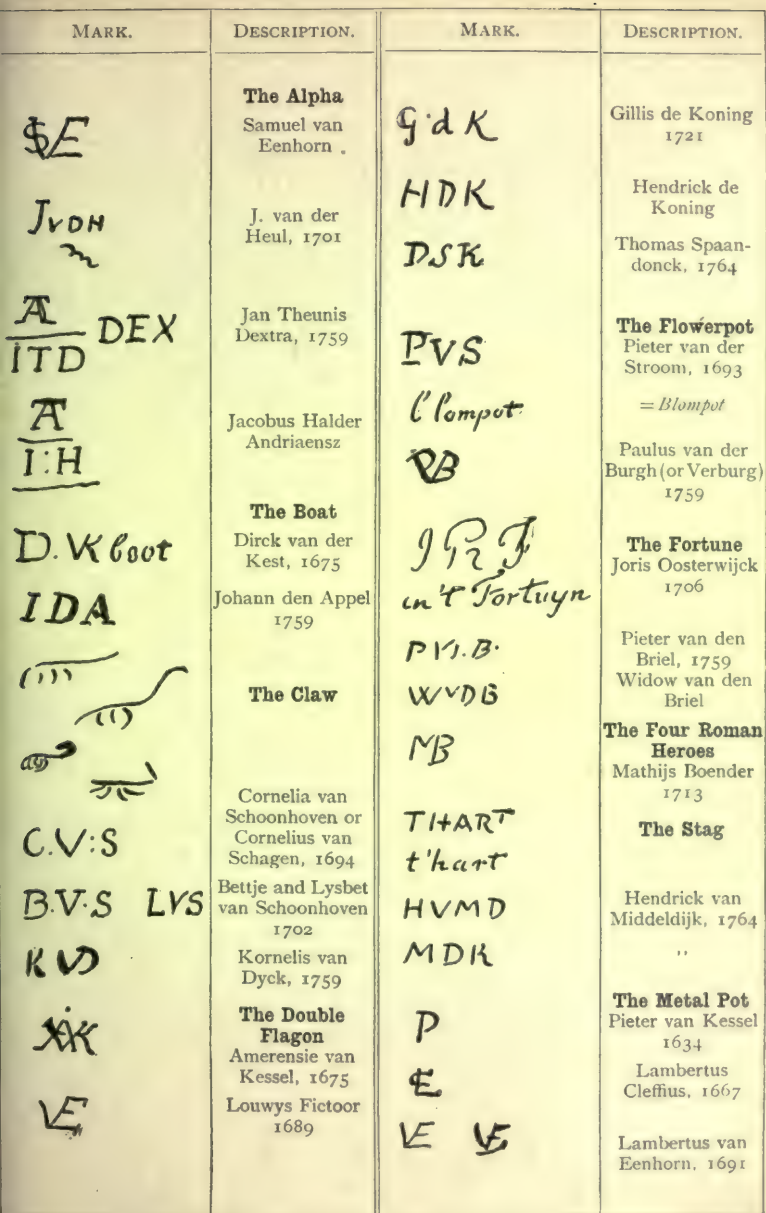 MARK.
DESCRIPTION.
The Alpha
Samuel van
Eenhorn
JVDH
J. van der
Heul, 1701
A
ITD DEX
Jan Theunis
Dextra, 1759
A
I:H
Jacobus Halder
Andriaensz
The Boat
D.VK boot
Dirck van der
Kest, 1675
IDA
Johann den Appel
1759
The Claw
C.V:S
Cornelia van
Schoonhoven or
Cornelius van
Schagen, 1694
B.V.S LVS
Bettje and Lysbet
van Schoonhoven
1702
KVD
Kornelis van
Dyck, 1759
The Double
Flagon
Amerensie van
Kessel, 1675
Louwys Fictoor
1689
MARK.
DESCRIPTION.
G·d K
Gillis de Koning
1721
HDK
Hendrick de
Koning
DSK
Thomas Spaan-
donck, 1764
The Flowerpot
PVS
Pieter van der
Stroom, 1693
= Blompot
Paulus van der
Burgh (or Verburg)
1759
The Fortune
Joris Oosterwijck
1706
in't Fortuyn
Pieter van den
Briel, 1759
WVDB
Widow van den
Briel
The Four Roman
Heroes
MB
Mathijs Boender
1713
THART
t'hart
The Stag
HVMD
Hendrick van
Middeldijk, 1764
MDK
"
The Metal Pot
P
Pieter van Kessel
1634
Lambertus
Cleffius, 1667
VE
Lambertus van
Eenhorn, 1691